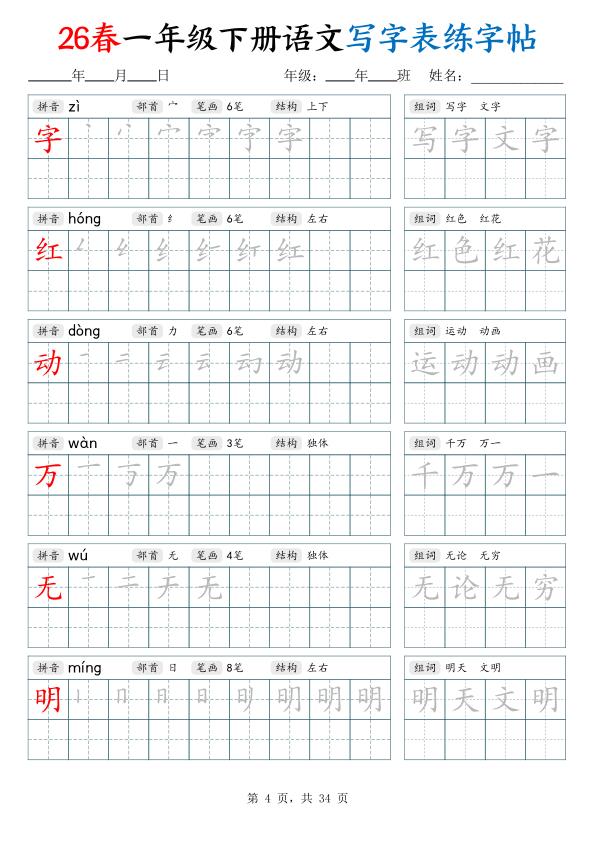 26春一年级下册语文写字表练字帖
年 月 日 年级： 年 班 姓名：
拼音 zì 部首 宀 笔画 6笔 结构 上下 组词 写字 文字
字 写字文字
拼音 hóng 部首 纟 笔画 6笔 结构 左右 组词 红色 红花
红 红 红色红花
拼音 dòng 部首 力 笔画 6笔 结构 左右 组词 运动 动画
动 动 运动动画
拼音 wàn 部首 一 笔画 3笔 结构 独体 组词 千万 万一
万 万 千万万一
拼音 wú 部首 无 笔画 4笔 结构 独体 组词 无论 无穷
无 无 无论无穷
拼音 míng 部首 日 笔画 8笔 结构 左右 组词 明天 文明
明 明 明天文明
第 4 页，共 34 页